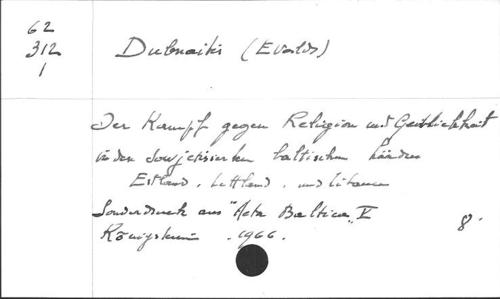 62
312
1
Dubnaitis (Evalds)
Der Kampf gegen Religion und Geistlichkeit
in den sowjetisierten baltischen Ländern
Estland, Lettland, und Litauen
Sonderdruck aus "Acta Baltica" V
Königstein . 1966.
8°